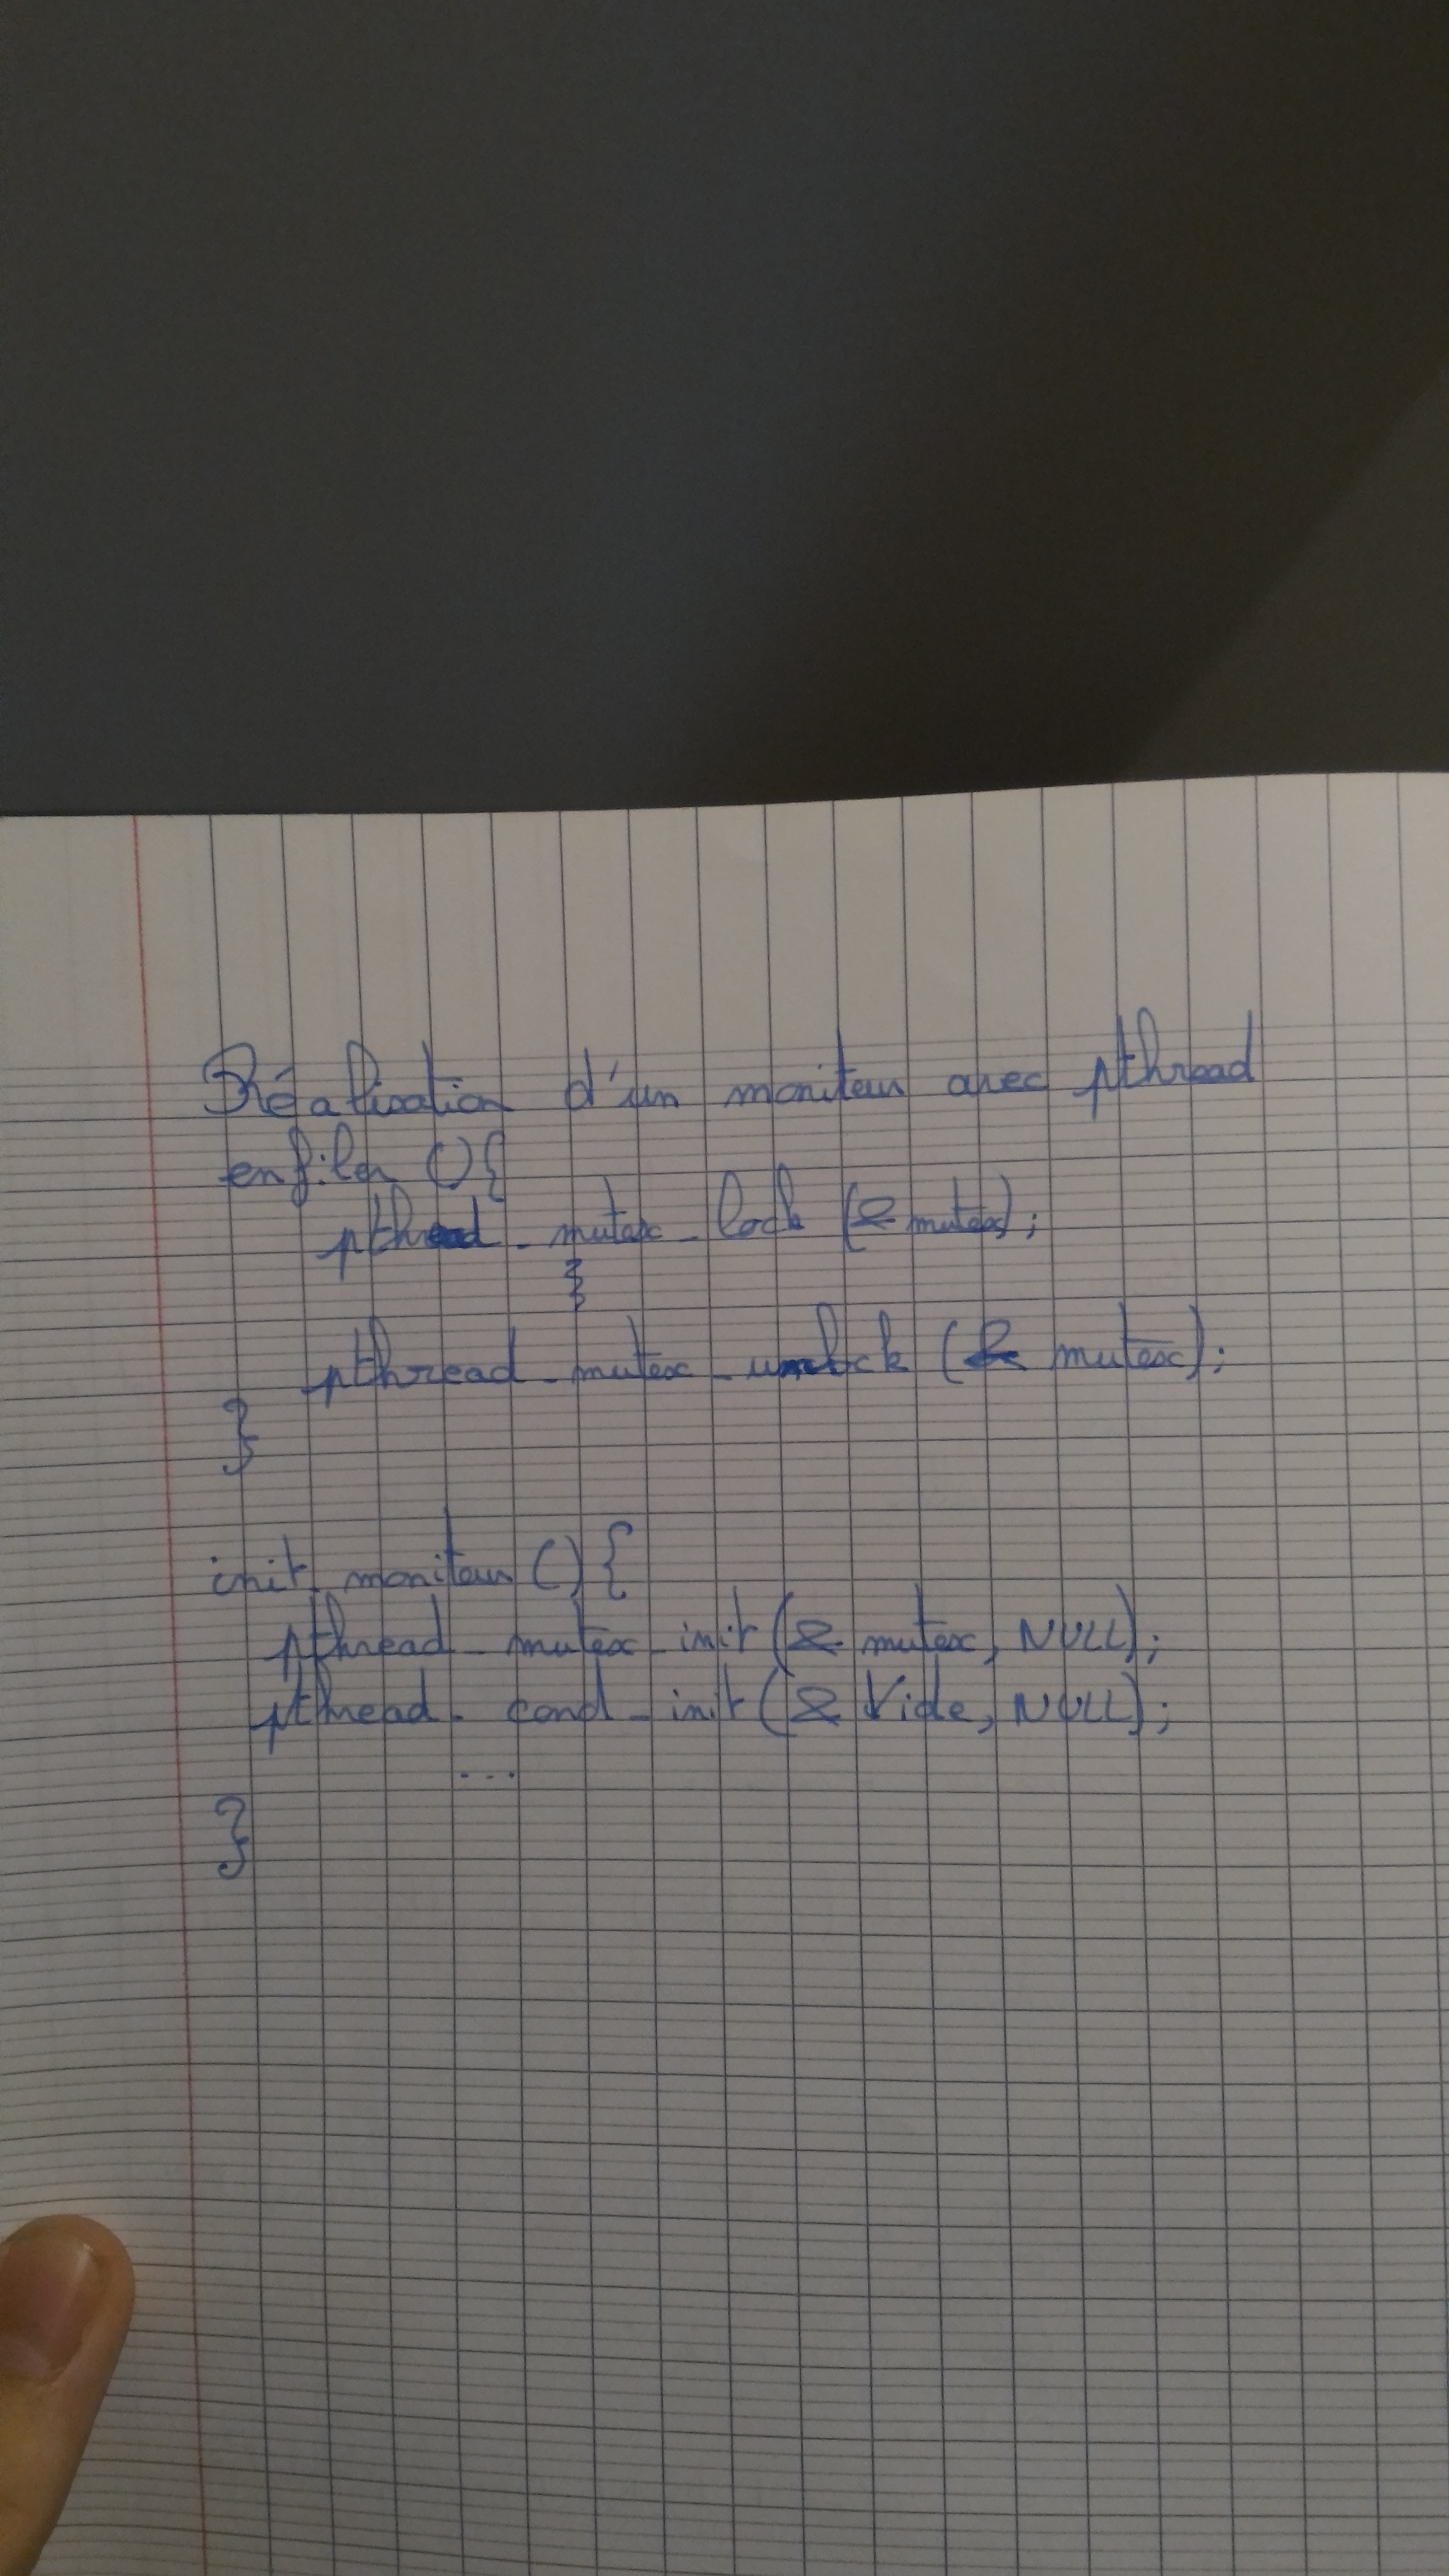 Réalisation d'un moniteur avec pthread
enfiler () {
pthread_mutex_lock (& mutex);
pthread_mutex_unlock (& mutex);
}
init_moniteur () {
pthread_mutex_init (& mutex, NULL);
pthread_cond_init (& Vide, NULL);
...
}